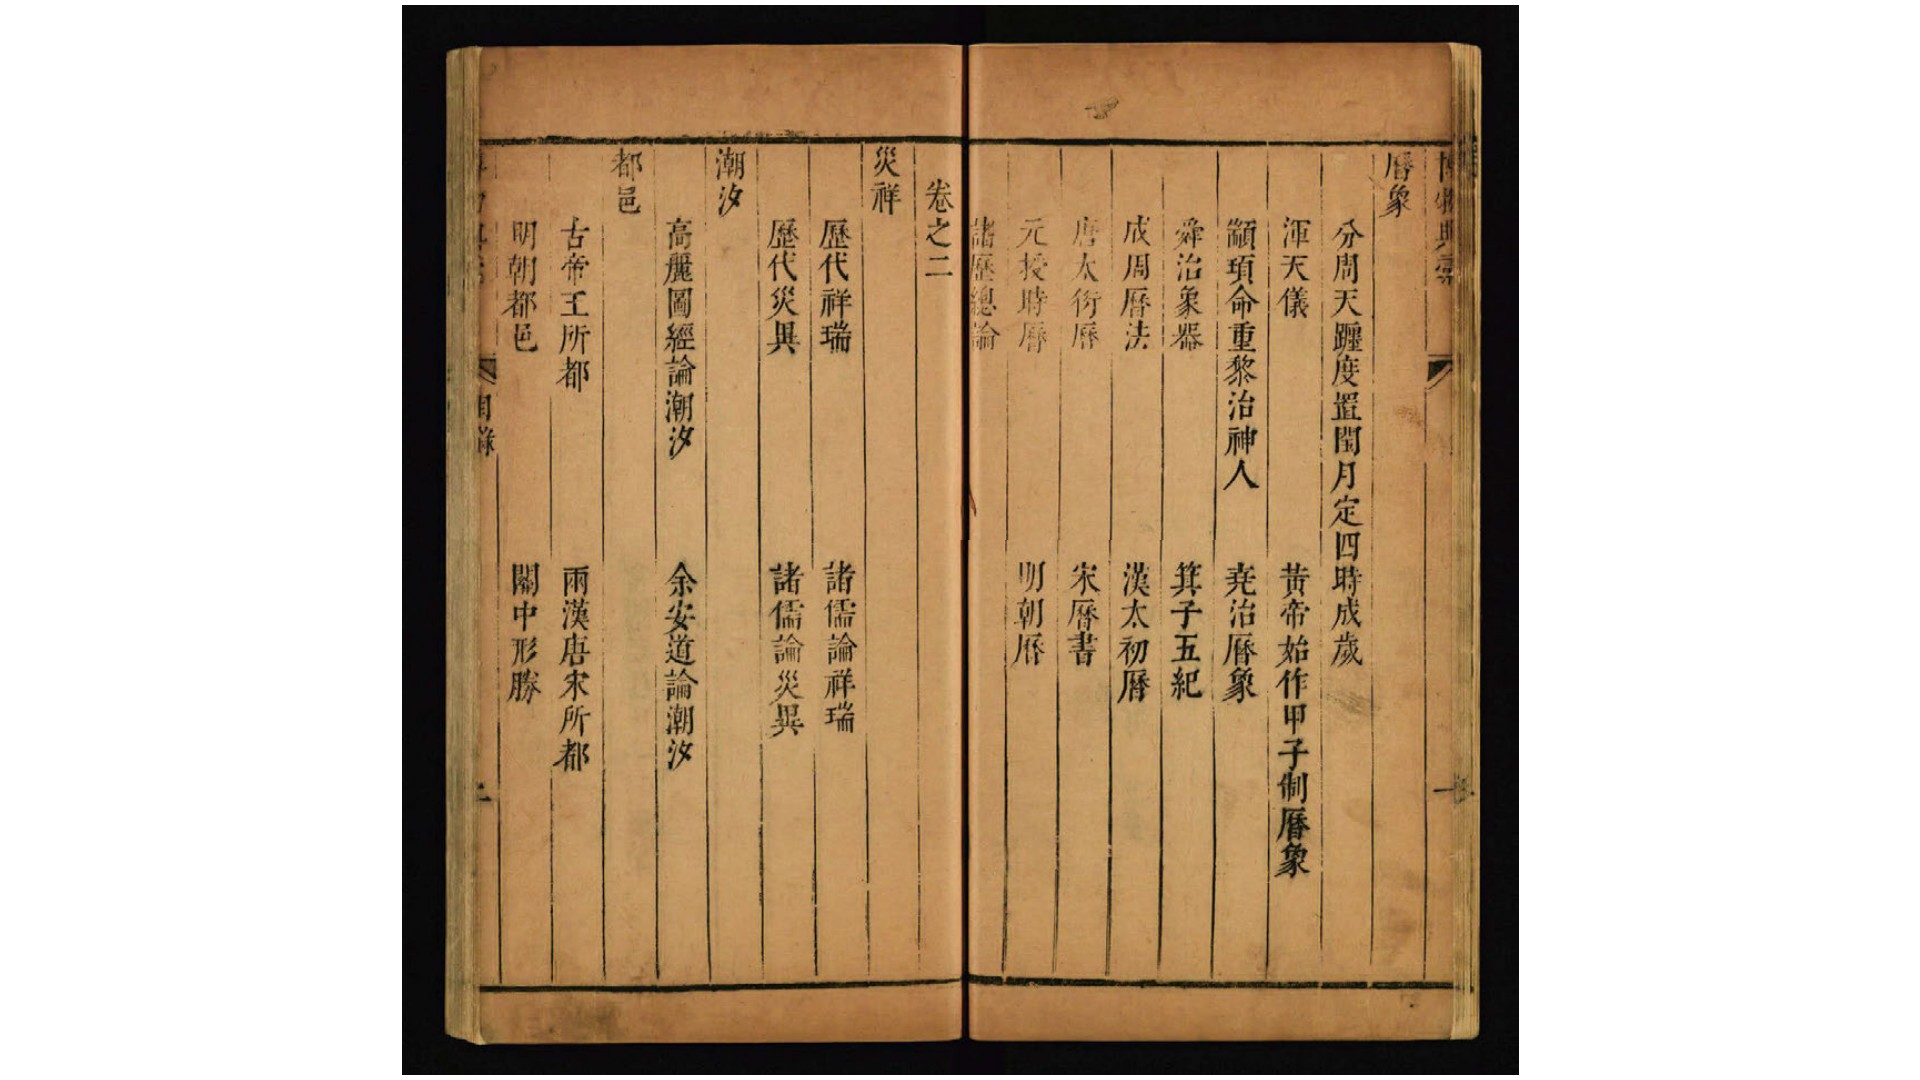 博物典彙
曆象
分周天躔度置閏月定四時成歲
渾天儀　黃帝始作甲子制曆象
顓頊命重黎治神人　堯治曆象
舜治象器　箕子五紀
成周曆法　漢太初曆
唐太衍曆　宋曆書
元授時曆　明朝曆
諸歷總論
卷之二
災祥
歷代祥瑞　諸儒論祥瑞
歷代災異　諸儒論災異
潮汐
高麗圖經論潮汐　余安道論潮汐
都邑
古帝王所都　兩漢唐宋所都
明朝都邑　關中形勝
目錄
二